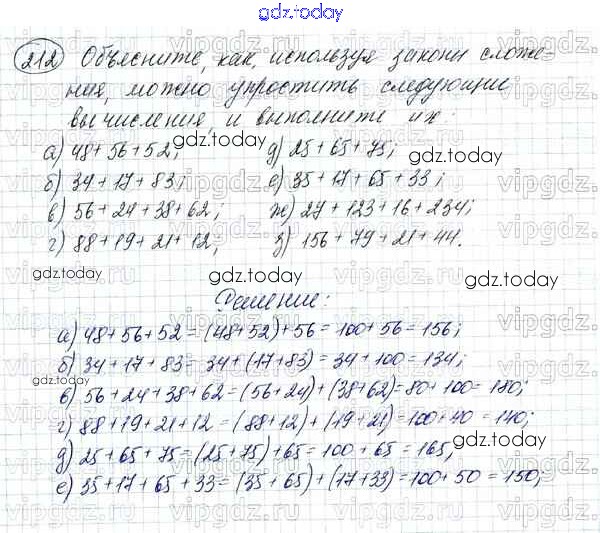 gdz.today
212 Объясните, как, используя законы сложе-
ния, можно упростить следующие
вычисления, и выполните их:
а) 48+56+52; д) 25+65+75;
gdz.today gdz.today
б) 34+17+83; е) 35+17+65+33;
в) 56+24+38+62; ж) 27+123+16+234;
г) 88+19+21+12; з) 156+79+21+44.
gdz.today
gdz.today
Решение:
а) 48+56+52=(48+52)+56=100+56=156;
б) 34+17+83=34+(17+83)=34+100=134;
gdz.today
в) 56+24+38+62=(56+24)+(38+62)=80+100=180;
г) 88+19+21+12=(88+12)+(19+21)=100+40=140;
д) 25+65+75=(25+75)+65=100+65=165;
gdz.today
е) 35+17+65+33=(35+65)+(17+33)=100+50=150;
gdz.today